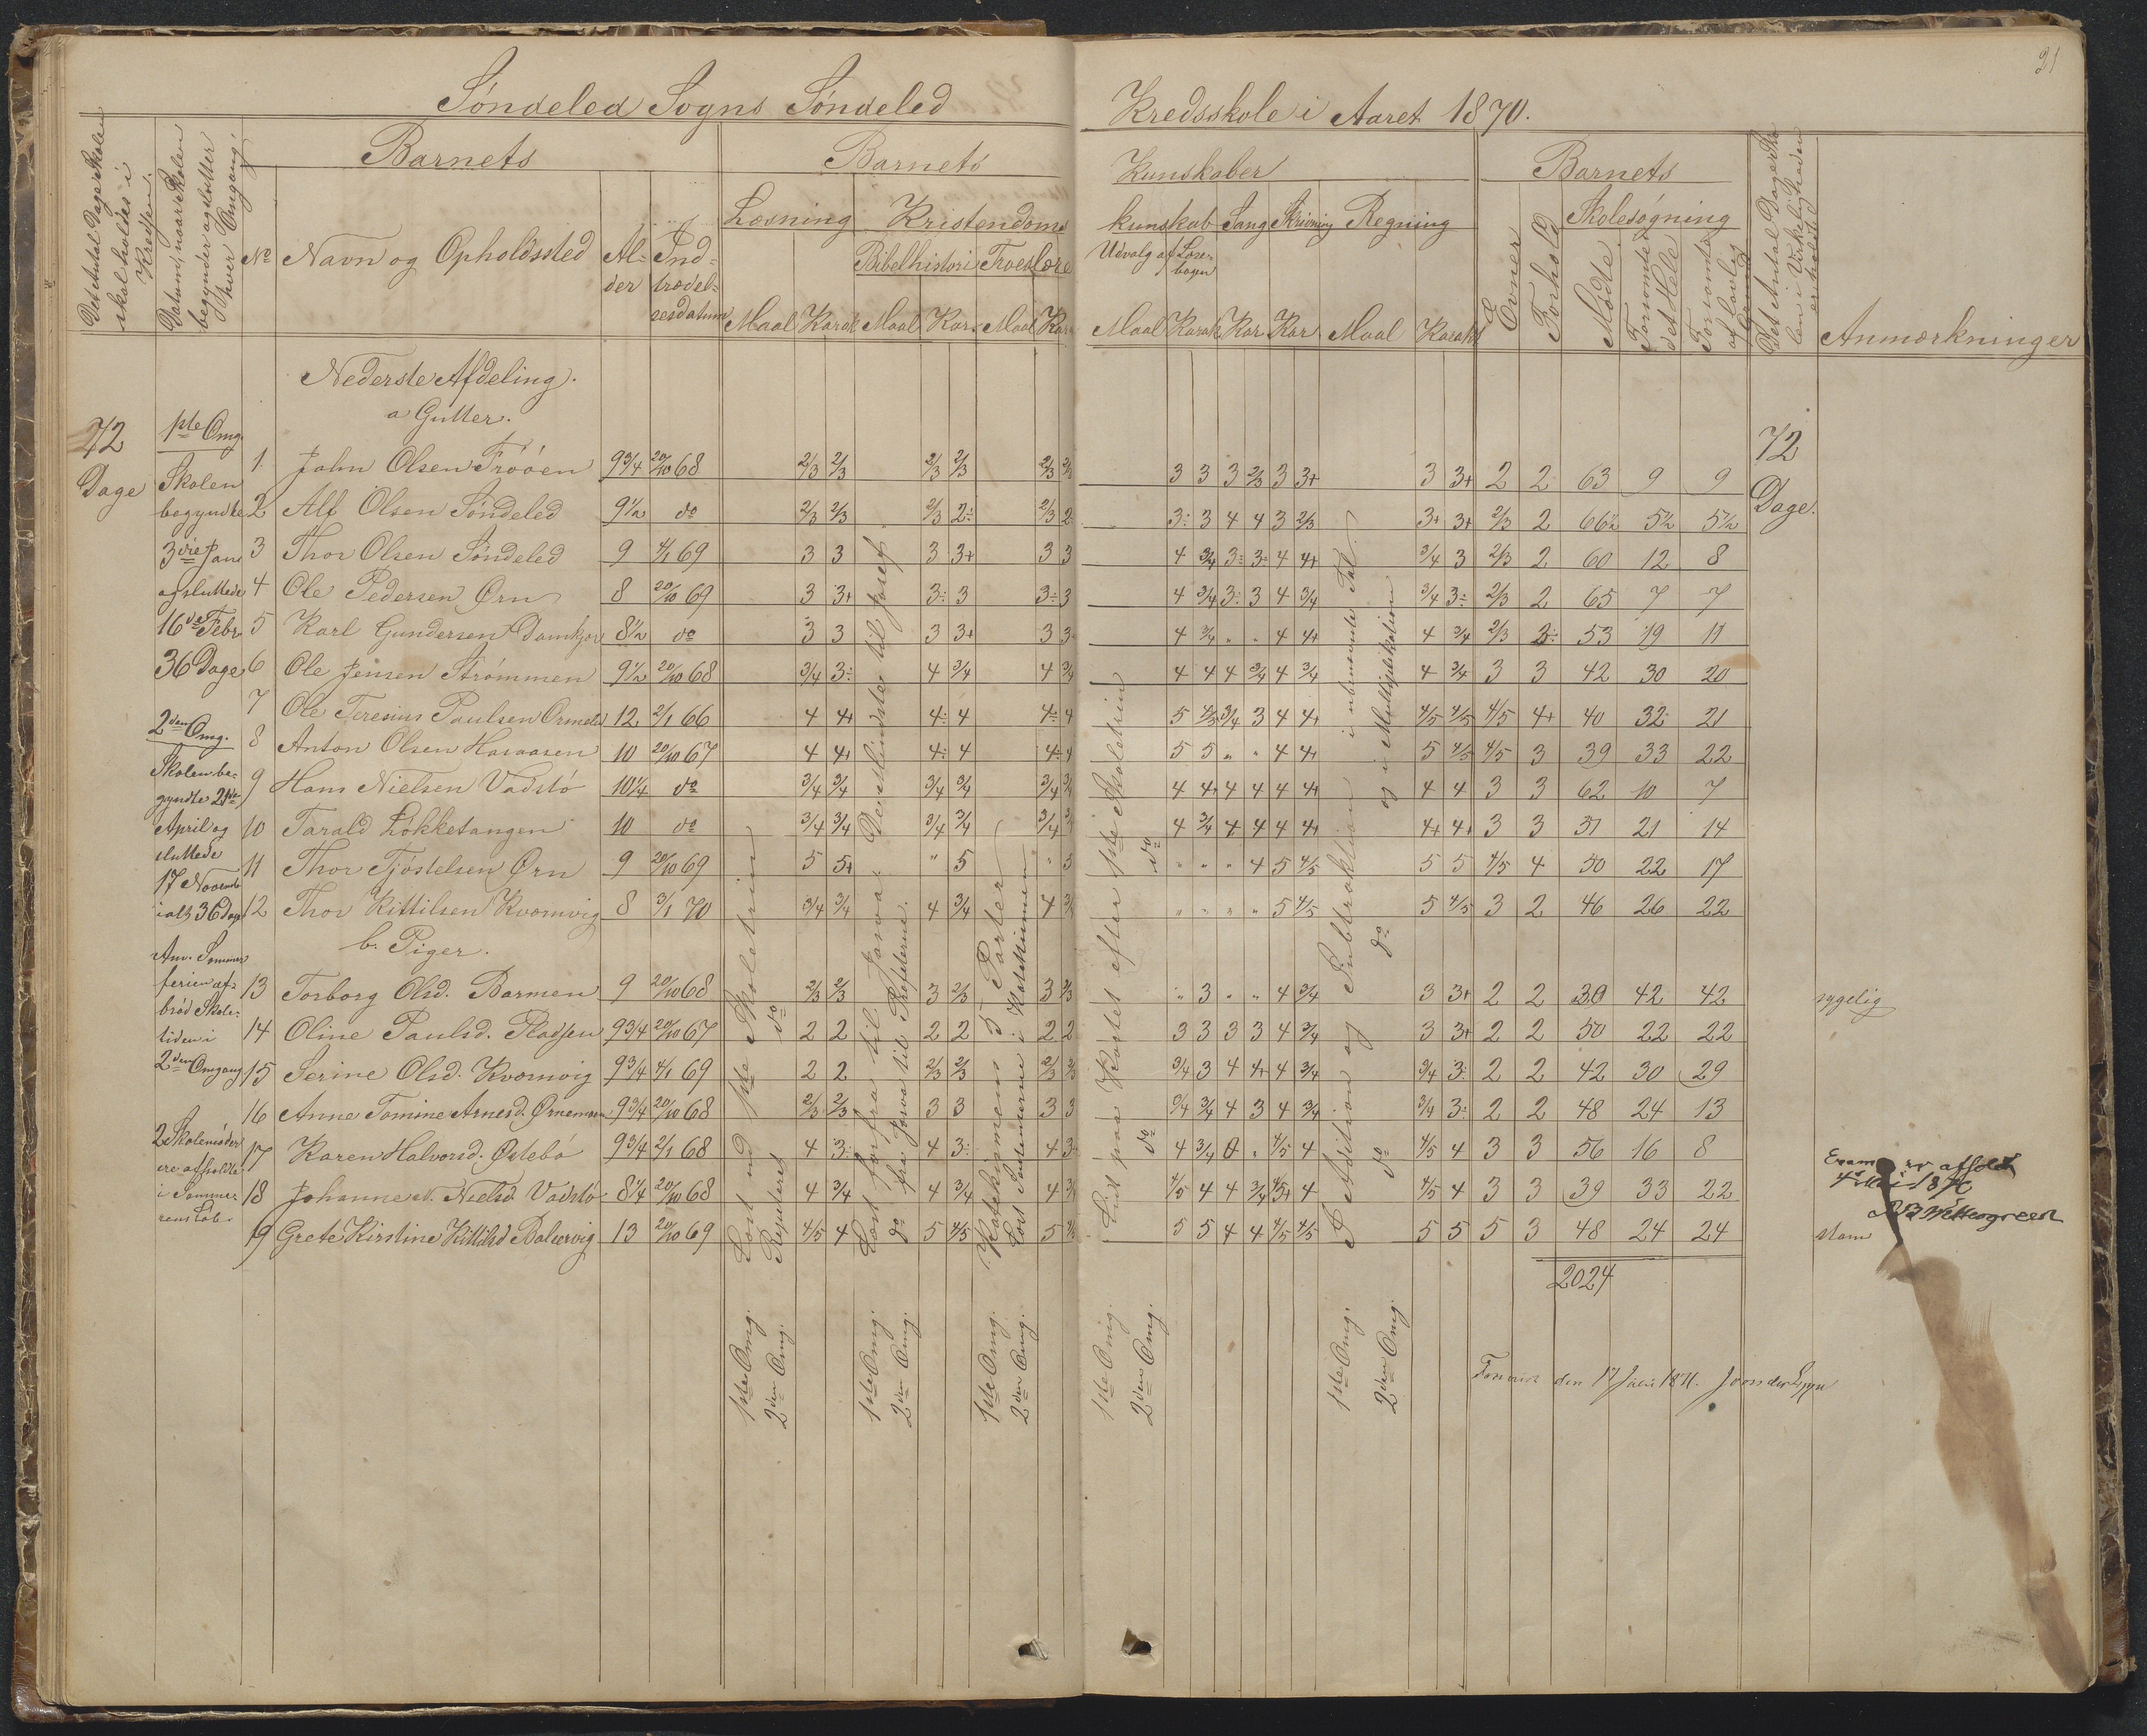 21
Søndeled Sogns Søndeled Kredsskole i Aaret 1870.
Det Antal Dage Skolen skal holdes i Kredsen.
Datum, naar Skolen begynder og slutter hver Omgang
Barnets
Barnets Kunskaber
Barnets
Det Antal Dage Skolen i Virkeligheden er holdt
Anmærkninger
No Navn og Opholdssted Alder Indtrædelsesdatum
Læsning Kristendomskunskab Sang Skrivning Regning
Bibelhistorie Troeslære Udvalg af Læsebogen
Maal Karakt Maal Kar. Maal Kar. Maal Karakt Kar Kar. Maal Karakt
Evner Forhold Skolesøgning
Mødte Forsømte det Hele Forsømte af lovlig Grund
Nederste Afdeling.
a Gutter.
72 Dage
1ste Omg.
Skolen
begyndte
3die Jan.
afsluttede
16de Febr
36 Dage
2den Omg.
Skolen be-
gyndte 21de
April og
sluttede
17 Novemb
ialt 36 Dage
Anm. Sommer
ferien af-
brød Skole-
tiden i
2den Omgang
2 Skolemøder
ere afholdte
i Sommer
rens Løb.
1 John Olsen Frøöen 9 3/4 20/10 68 2/3 2/3 2/3 2/3 2/3 3 3 3 2/3 3 3+ 3 3+ 2 2 63 9 9
2 Alf Olsen Søndeled 9 1/2 do 2/3 2/3 2/3 2÷ 2/3 2 3÷ 3 4 4 3 2/3 3+ 3+ 2/3 2 66 1/2 5 1/2 5 1/2
3 Thor Olsen Søndeled 9 4/1 69 3 3 3 3+ 3 3 4 3/4 3÷ 3÷ 4 4+ 3/4 3 2/3 2 60 12 8
4 Ole Pedersen Ørn 8 20/10 69 3 3+ 3÷ 3 3÷ 3 4 3/4 3÷ 3 4 3/4 3/4 3÷ 2/3 2 65 7 7
5 Karl Gundersen Damkjær 8 1/2 do 3 3 3 3+ 3 3 4 3/4 " " 4 4+ 4 3/4 2/3 2÷ 53 19 11
6 Ole Jensen Strømmen 9 1/2 20/10 68 3/4 3÷ 4 3/4 4 3/4 4 4 4 3/4 4 3/4 4 3/4 3 3 42 30 20
7 Ole Teresius Paulsen 12 2/1 66 4 4+ 4÷ 4 4÷ 4 5 4/5 3/4 3 4 4+ 4/5 4/5 4/5 4+ 40 32 21
8 Anton Olsen Hasaasen 10 20/10 67 4 4+ 4÷ 4 4÷ 4 5 5 " " 4 4+ 5 4/5 4/5 3 39 33 22
9 Hans Nielsen Vadstö 10 1/4 do 3/4 3/4 3/4 3/4 3/4 3/4 4 4+ 4 4 4 4+ 4 4 3 3 62 10 7
10 Tarald Lökketangen 10 do 3/4 3/4 3/4 3/4 3/4 4 3/4 4 4 4 4+ 4+ 4+ 3 3 51 21 14
11 Thor Tjöstelsen Ørn 9 20/10 69 5 5+ " 5 " 5 " " " 4 5 4/5 5 5 4/5 4 50 22 17
12 Thor Kittilsen Kvomvig 8 3/1 70 3/4 3/4 4 3/4 4 3/4 " " " " 5 4/5 5 4/5 3 2 46 26 22
b. Piger.
13 Torborg Olsd. Barmen 9 20/10 68 2/3 2/3 3 2/3 3 2/3 " 3 " " 4 3/4 3 3+ 2 2 30 42 42 sygelig
14 Oline Paulsd. Pladsen 9 3/4 20/10 67 2 2 2 2 2 2 3 3 3 3 4 3/4 3 3+ 2 2 50 22 22
15 Serine Olsd. Kvomvig 9 3/4 4/1 69 2 2 2/3 2/3 2/3 2/3 3/4 3 4 4+ 4 3/4 3/4 3÷ 2 2 42 30 29
16 Anne Tomine Arnesd. 9 3/4 20/10 68 2/3 2/3 3 3 3 3 3/4 3/4 4 3 4 3/4 3/4 3÷ 2 2 48 24 13
17 Karen Halvorsd. Østebö 9 3/4 2/1 68 4 3÷ 4 3÷ 4 3 4 3/4 0 " 4/5 4 4/5 4 3 3 56 16 8
18 Johanne M. Nielsd. Vadstö 8 1/4 20/10 68 4 3/4 4 3/4 4 3/4 4/5 4 4 3/4 4/5+ 4 4/5 4 3 3 39 33 22
19 Grete Kirstine Kittilsd 13 20/10 69 4/5 4 5 4/5 5 4/5 5 5 4 4 4/5 4/5 5 5 5 3 48 24 24 Stam
2024
72
Dage.
1ste Omg. Læst ud 1ste Skoletrin
2den Omg. Repeteret do
1ste Omg. Læst forfra til Josva. Deistlindste til Josef
2den Omg. do fra Josva til Profeterne.
1ste Omg. Katekismens 5 Parter
2den Omg. Læst Sentenserne i Katekismen
1ste Omg. Lidt paa Kortet efter 1ste Skoletrin
2den Omg. do do
1ste Omg. I Adition og Subtraktion i ubenevnte Tal.
2den Omg. do do og i Multiplikation
Examen er afholdt
4de Mai 1870
Wettergreen
den 17 Juni 1871.